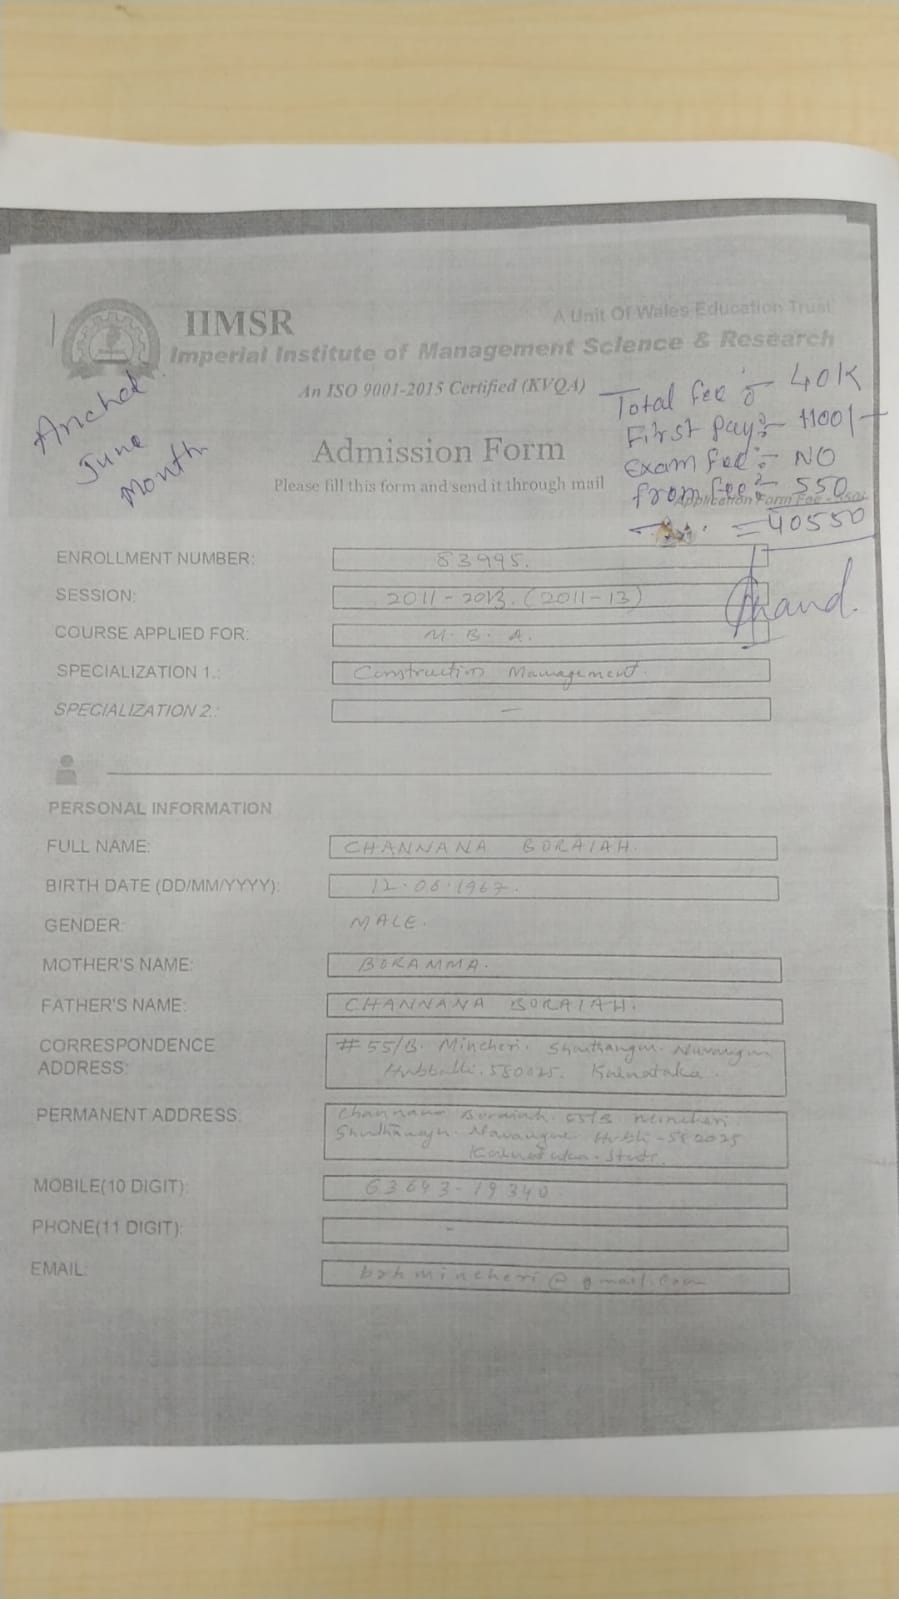 IIMSR
A Unit Of Wales Education Trust
Imperial Institute of Management Science & Research
An ISO 9001-2015 Certified (KVQA)
Anchal
June
Month
Total fee :- 40K
First Pay :- 11001/-
Exam fee :- NO
from fee :- 550
= 40550
Admission Form
Please fill this form and send it through mail
Application Form Fee - 550/-
ENROLLMENT NUMBER: 83995.
SESSION: 2011-2013. (2011-13)
COURSE APPLIED FOR: M. B. A.
SPECIALIZATION 1.: Construction Management.
SPECIALIZATION 2.: -
PERSONAL INFORMATION
FULL NAME: CHANNANA BORAIAH.
BIRTH DATE (DD/MM/YYYY): 12.06.1967.
GENDER: MALE.
MOTHER'S NAME: BORAMMA.
FATHER'S NAME: CHANNANA BORAIAH.
CORRESPONDENCE # 55/B. Mincheri.
ADDRESS: 580025. Karnataka.
PERMANENT ADDRESS: 55/B Mincheri.
MOBILE(10 DIGIT): 63643-19340
PHONE(11 DIGIT): -
EMAIL: brhmincheri@gmail.com